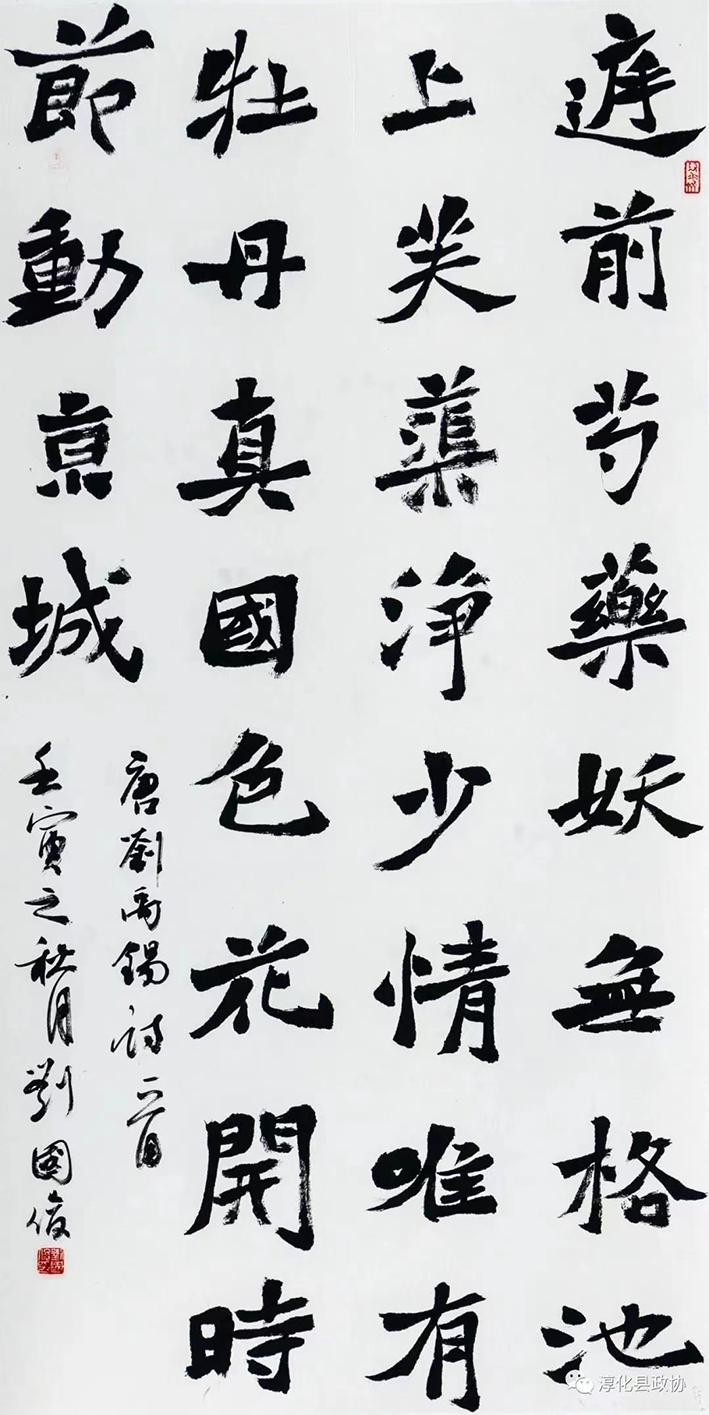 庭前芍藥妖無格池
上芙蕖淨少情唯有
牡丹真國色花開時
節動京城
唐劉禹錫詩一首
壬寅之秋月劉國俊
淳化县政协